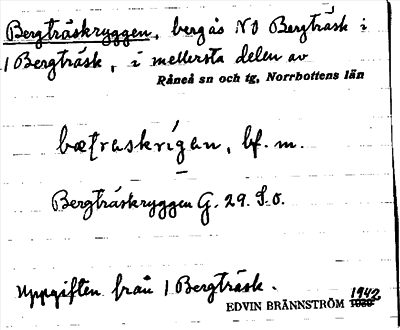 Bergträskryggen, bergås NO Bergträsk i
1 Bergträsk, i mellersta delen av
Råneå sn och tg, Norrbottens län
bætraskrígan, bf. m.
Bergträskryggen G. 29. S.O.
Uppgiften från 1 Bergträsk.
1942
EDVIN BRÄNNSTRÖM 1930